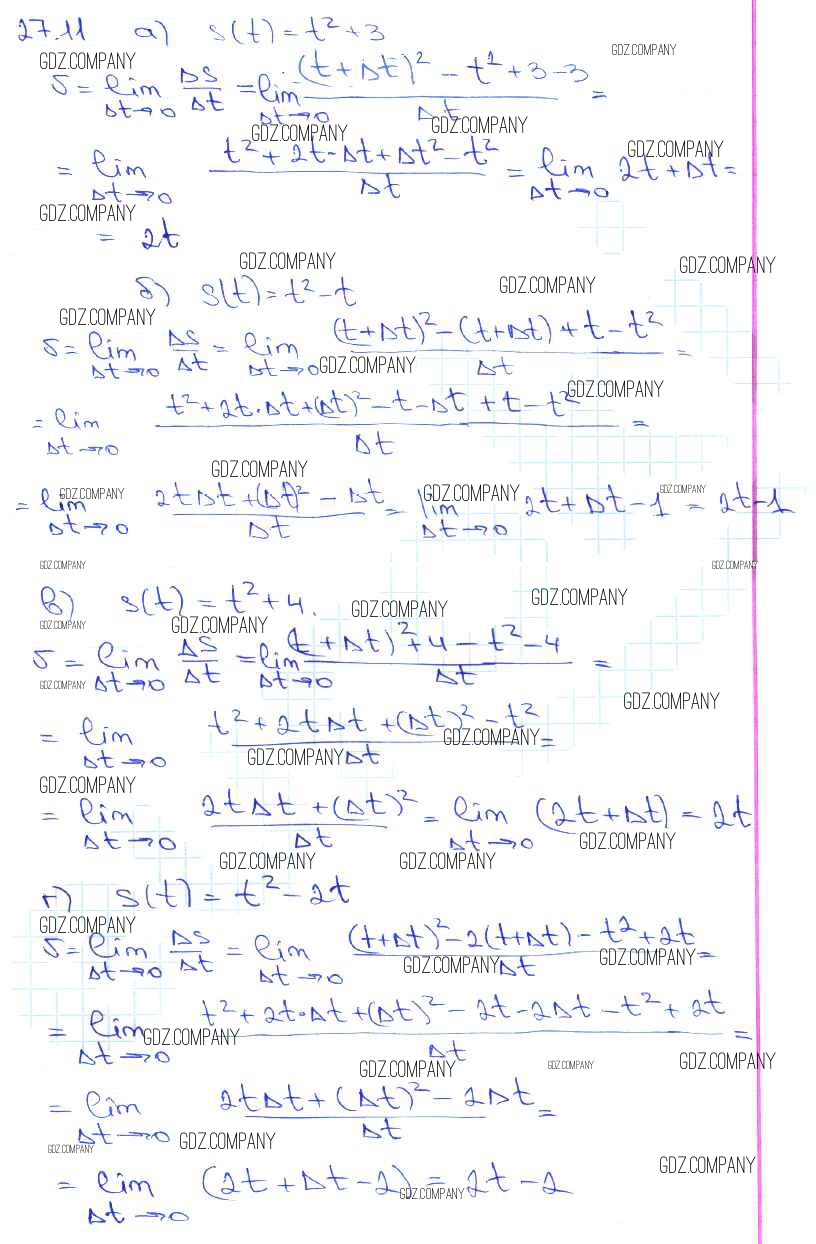 27.11 а) s(t) = t² + 3
GDZ.COMPANY GDZ.COMPANY
υ = lim Δt→0 Δs/Δt = lim Δt→0 ((t+Δt)² − t² + 3 − 3)/Δt =
GDZ.COMPANY GDZ.COMPANY GDZ.COMPANY
= lim Δt→0 (t² + 2t·Δt + Δt² − t²)/Δt = lim Δt→0 2t + Δt =
GDZ.COMPANY
= 2t
GDZ.COMPANY GDZ.COMPANY
б) s(t) = t² − t
GDZ.COMPANY
GDZ.COMPANY
υ = lim Δt→0 Δs/Δt = lim Δt→0 ((t+Δt)² − (t+Δt) + t − t²)/Δt =
GDZ.COMPANY
GDZ.COMPANY
= lim Δt→0 (t² + 2t·Δt + (Δt)² − t − Δt + t − t²)/Δt =
GDZ.COMPANY
GDZ.COMPANY GDZ.COMPANY GDZ.COMPANY
= lim Δt→0 (2tΔt + (Δt)² − Δt)/Δt = lim Δt→0 2t + Δt − 1 = 2t − 1
GDZ.COMPANY GDZ.COMPANY
в) s(t) = t² + 4.
GDZ.COMPANY GDZ.COMPANY
GDZ.COMPANY GDZ.COMPANY
υ = lim Δt→0 Δs/Δt = lim Δt→0 ((t+Δt)² + 4 − t² − 4)/Δt =
GDZ.COMPANY GDZ.COMPANY
= lim Δt→0 (t² + 2tΔt + (Δt)² − t²)/Δt =
GDZ.COMPANY GDZ.COMPANY
GDZ.COMPANY
= lim Δt→0 (2tΔt + (Δt)²)/Δt = lim Δt→0 (2t + Δt) = 2t
GDZ.COMPANY
GDZ.COMPANY GDZ.COMPANY
г) s(t) = t² − 2t
GDZ.COMPANY
υ = lim Δt→0 Δs/Δt = lim Δt→0 ((t+Δt)² − 2(t+Δt) − t² + 2t)/Δt =
GDZ.COMPANY GDZ.COMPANY
= lim Δt→0 (t² + 2t·Δt + (Δt)² − 2t − 2Δt − t² + 2t)/Δt =
GDZ.COMPANY
GDZ.COMPANY GDZ.COMPANY GDZ.COMPANY
= lim Δt→0 (2tΔt + (Δt)² − 2Δt)/Δt =
GDZ.COMPANY GDZ.COMPANY
GDZ.COMPANY
= lim Δt→0 (2t + Δt − 2) = 2t − 2
GDZ.COMPANY